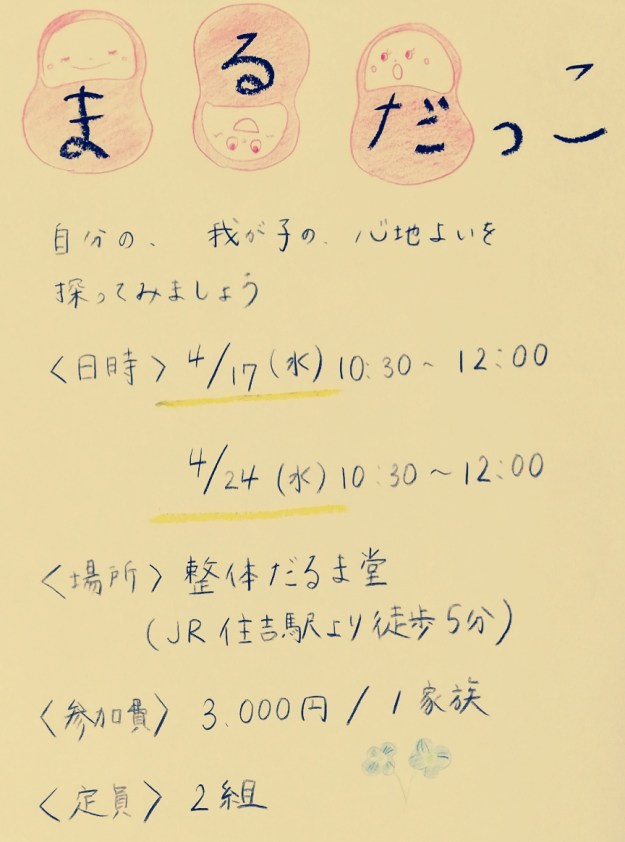 まるだっこ
自分の、 我が子の、心地よいを
探ってみましょう
〈日時〉 4/17(水) 10:30~12:00
4/24(水) 10:30~12:00
〈場所〉 整体だるま堂
(JR住吉駅より徒歩5分)
〈参加費〉 3.000円/1家族
〈定員〉 2組